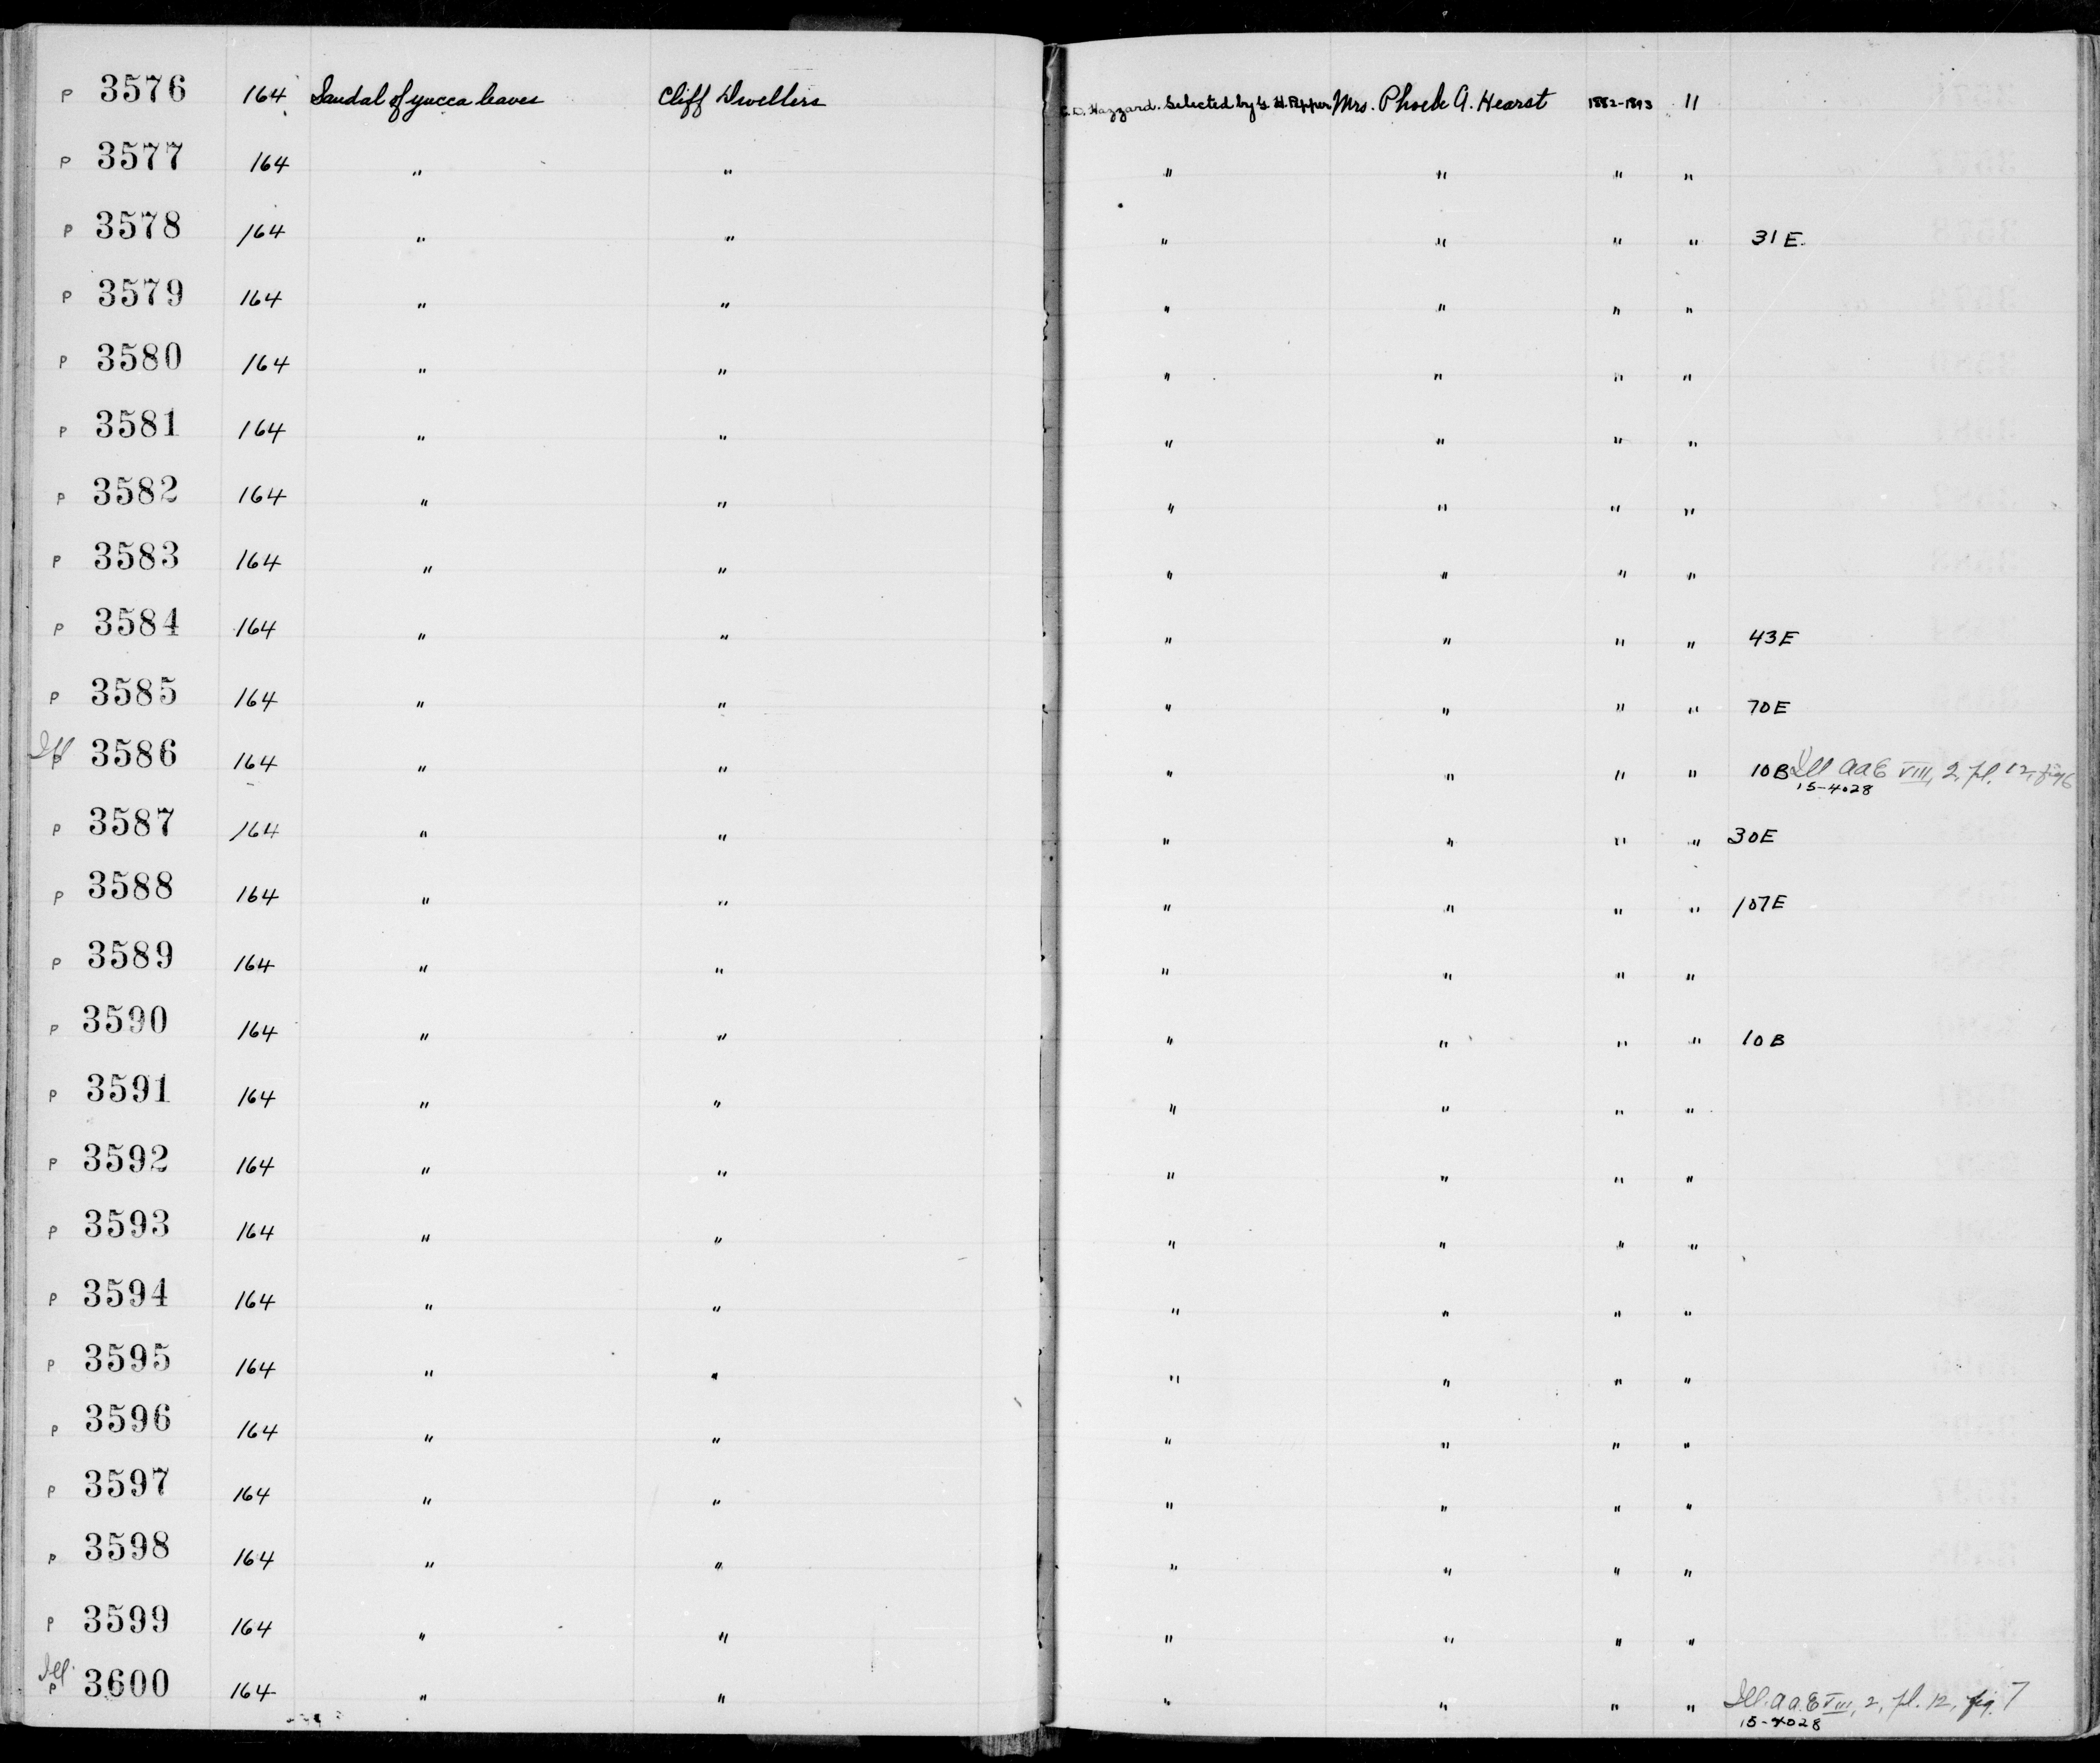 P 3576 164 Sandal of yucca leaves Cliff Dwellers C. D. Hazzard. Selected by G. H. Pepper Mrs. Phoebe A. Hearst 1882-1893 11
P 3577 164 " " " " " "
P 3578 164 " " " " " " 31E.
P 3579 164 " " " " " "
P 3580 164 " " " " " "
P 3581 164 " " " " " "
P 3582 164 " " " " " "
P 3583 164 " " " " " "
P 3584 164 " " " " " " 43E
P 3585 164 " " " " " " 70E
Ill P 3586 164 " " " " " " 10B Ill AAE VIII, 2, pl. 12, fig 6
15-4028
P 3587 164 " " " " " " 30E
P 3588 164 " " " " " " 107E
P 3589 164 " " " " " "
P 3590 164 " " " " " " 10B
P 3591 164 " " " " " "
P 3592 164 " " " " " "
P 3593 164 " " " " " "
P 3594 164 " " " " " "
P 3595 164 " " " " " "
P 3596 164 " " " " " "
P 3597 164 " " " " " "
P 3598 164 " " " " " "
P 3599 164 " " " " " "
Ill. P 3600 164 " " " " " " Ill. AAE VIII, 2, pl. 12, fig. 7
15-4028